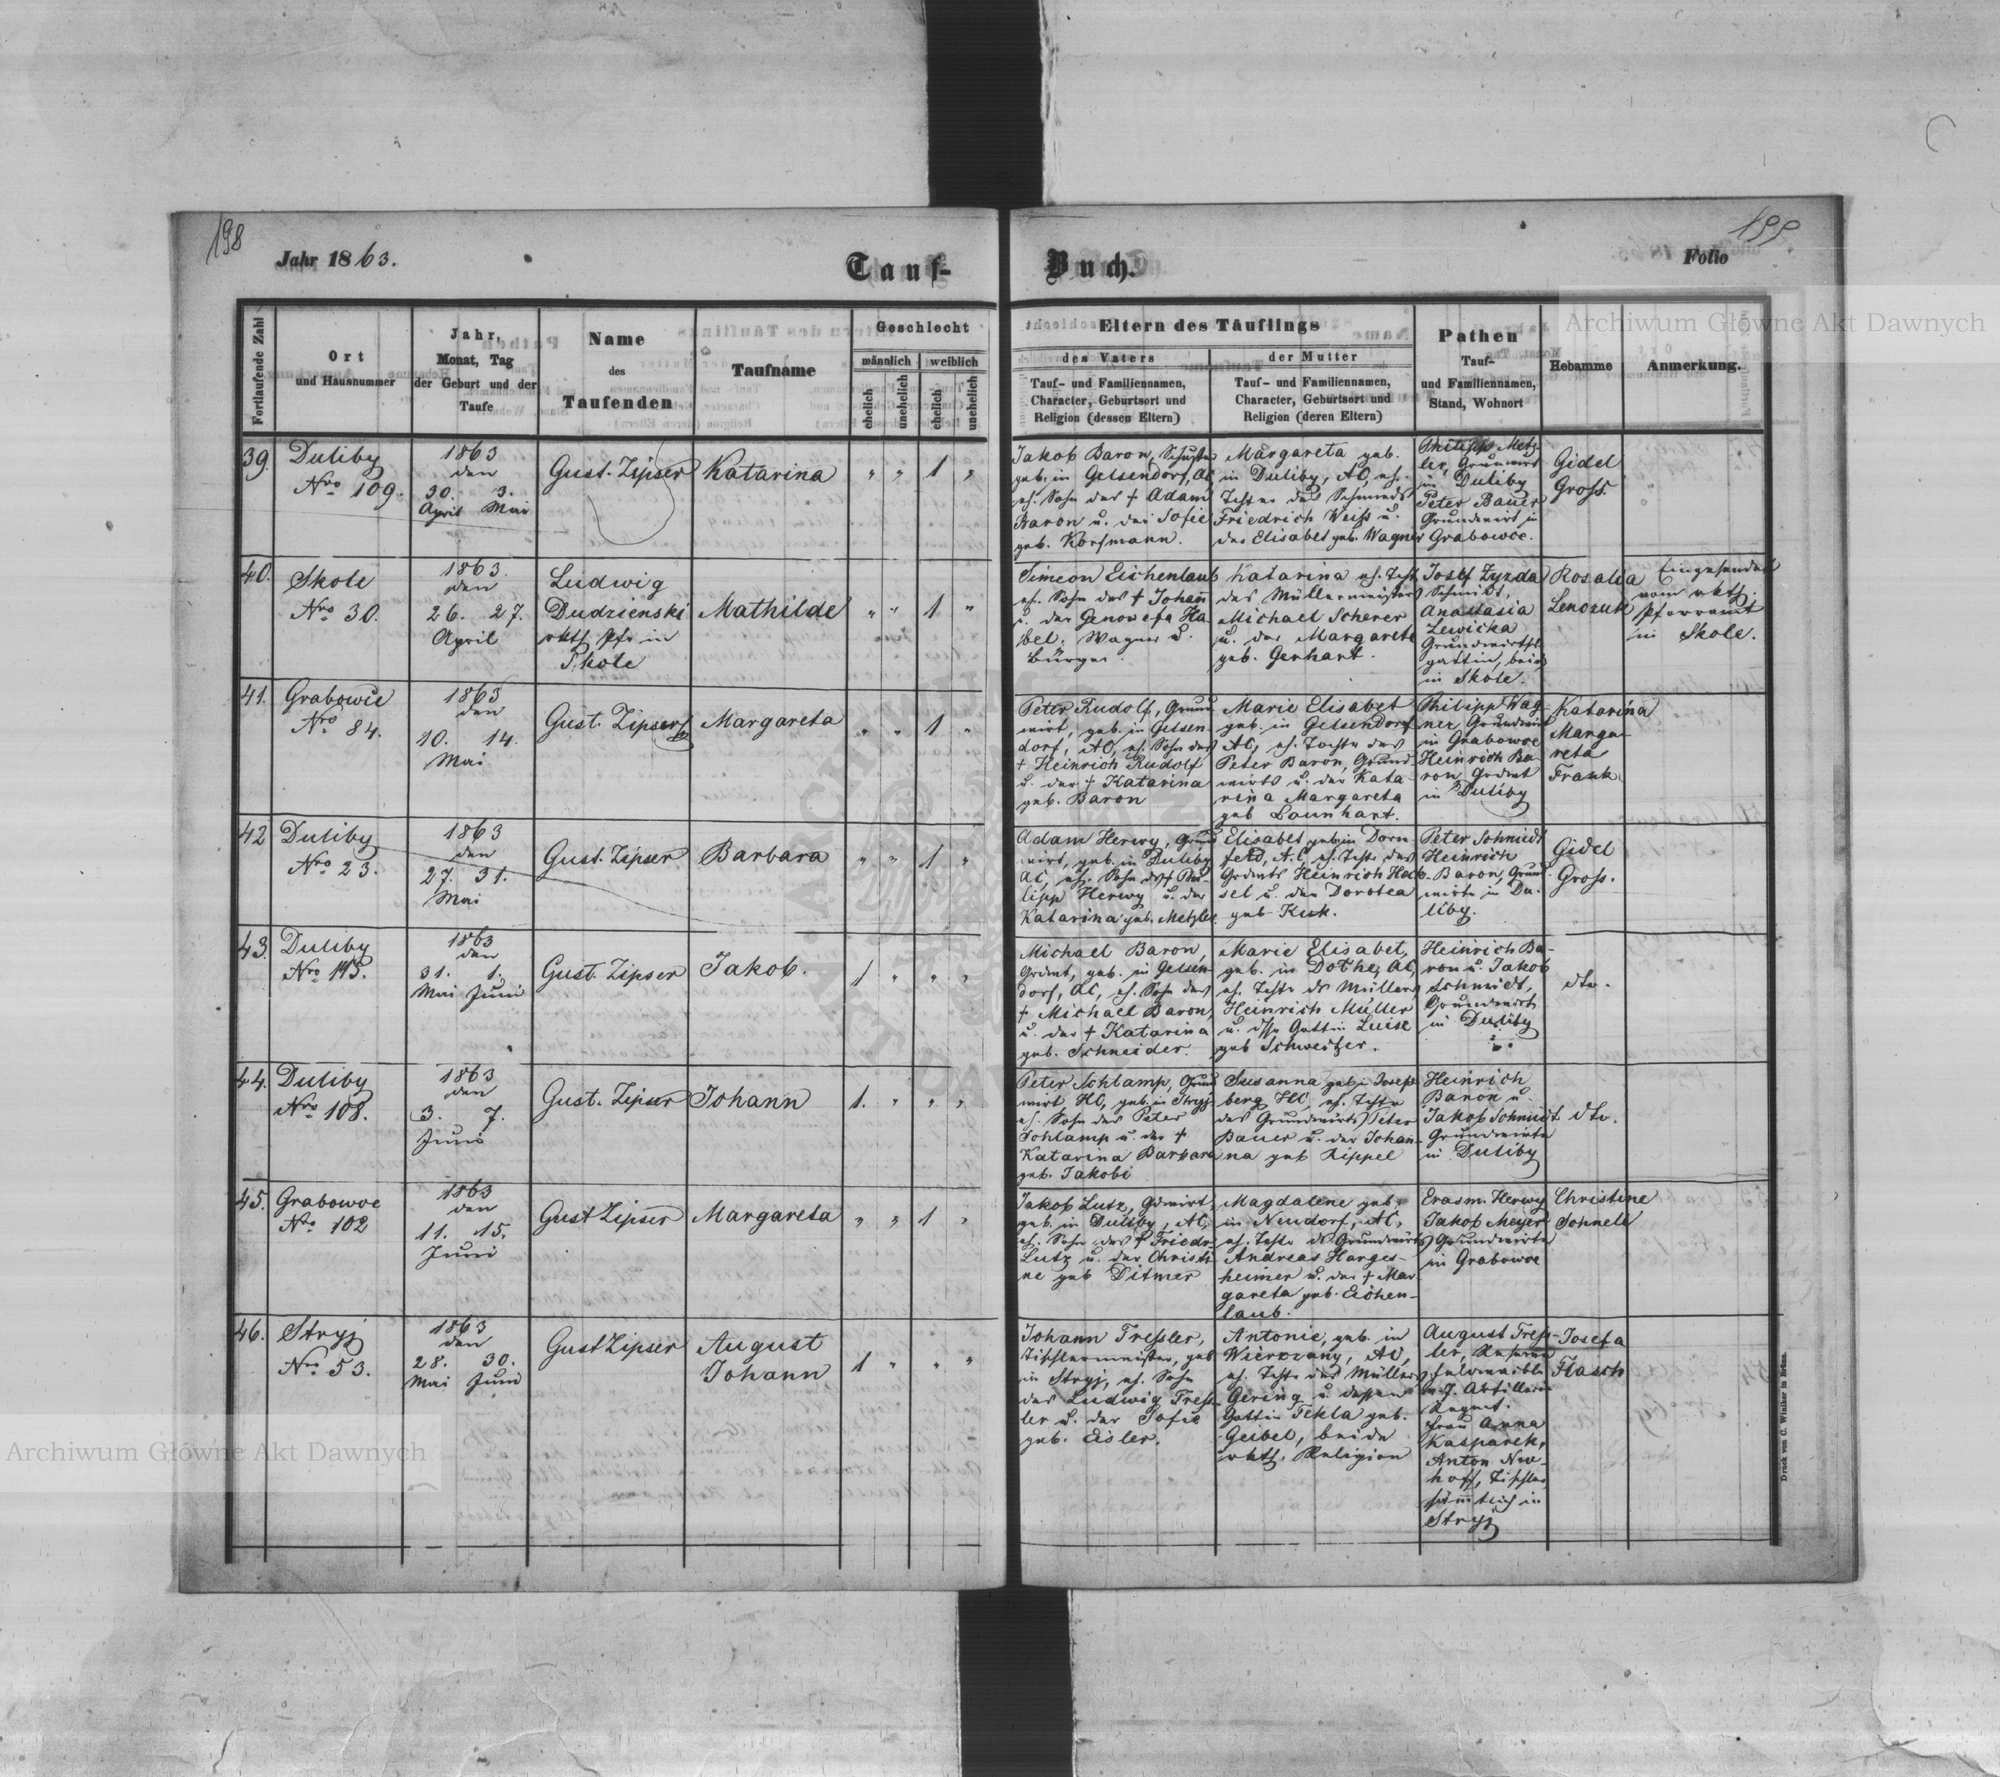 198
Jahr 1863.
Tauf-
Buch.
199
Folio
Archiwum Główne Akt Dawnych
Fortlaufende Zahl
Ort
und Hausnummer
Jahr,
Monat, Tag
der Geburt und der
Taufe
Name
des
Taufenden
Taufname
Geschlecht
männlich
weiblich
ehelich
unehelich
ehelich
unehelich
Eltern des Täuflings
des Vaters
Tauf- und Familiennamen,
Character, Geburtsort und
Religion (dessen Eltern)
der Mutter
Tauf- und Familiennamen,
Character, Geburtsort und
Religion (deren Eltern)
Pathen
Tauf-
und Familiennamen,
Stand, Wohnort
Hebamme
Anmerkung.
39.
Duliby
Nro 109.
1863
den
30. 3.
April Mai
Gust. Zipser
Katarina
" " 1 "
Jakob Baron, Schuster
geb. in Gelsendorf, AC
eh. Sohn des † Adam
Baron u. der Sofie
geb. Korfmann.
Margareta geb.
in Duliby, AC, eh.
Tochter des Schmieds
Friedrich Weiß u.
der Elisabet geb. Wagner
Philipp Metz-
ler, Grundwirt
in Duliby
Peter Bauer
Grundwirt in
Grabowce.
Gidel
Gross.
40.
Skole
Nro 30.
1863.
den
26. 27.
April
Ludwig
Dudzienski
rkth. Pfr. in
Skole
Mathilde
" " 1 "
Simeon Eichenlaub
eh. Sohn des † Johann
u. der Genowefa Ha-
bel, Wagner u.
Bürger.
Katarina eh. Tocht.
des Müllermeisters
Michael Scherer
u. der Margareta
geb. Gerhart.
Josef Zyzda
Schmidt,
Anastasia
Lewicka
Grundwirths-
gattin, beide
in Skole.
Rosalia
Lenczuk
Eingesendet
vom rkth.
Pfarramt
in Skole.
41.
Grabowce
Nro 84.
1863
den
10. 14.
Mai
Gust. Zipser
Margareta
" " 1 "
Peter Rudolf, Grund
wirt, geb. in Gelsen-
dorf, AC, eh. Sohn des
† Heinrich Rudolf
u. der † Katarina
geb. Baron
Marie Elisabet
geb. in Gelsendorf
AC, eh. Tochter des
Peter Baron, Grund
wirts u. der Kata-
rina Margareta
geb Launhart.
Philipp Wag-
ner Grundwirt
in Grabowce
Heinrich Ba-
ron Grdwt
in Duliby
Katarina
Marga-
reta
Frank
42
Duliby
Nro 23.
1863
den
27. 31.
Mai
Gust. Zipser
Barbara
" " 1 "
Adam Herwy, Grund
wirt, geb. in Duliby
AC, eh. Sohn des † Phi-
lipp Herwy u. der
Katarina geb. Metzler
Elisabet geb in Dorn
feld, AC, eh. Tochter des
Grdwts Heinrich
sel u. der Dorotea
geb Kuk.
Peter Schmidt
Heinrich
Baron, Grund-
wirte in Du-
liby.
Gidel
Gross.
43.
Duliby
Nro 145.
1863
den
31. 1.
Mai Juni
Gust. Zipser
Jakob.
1 " " "
Michael Baron,
Grdwt, geb. in Gelsen-
dorf, AC, eh. Sohn des
† Michael Baron,
u. der † Katarina
geb. Schneider.
Marie Elisabet,
geb. in Dothe, AC,
eh. Tochter ds Müllers
Heinrich Müller
u. dssn Gattin Luise
geb Schweitzer.
Heinrich Ba-
ron u. Jakob
Schmidt,
Grundwirt
in Duliby
dto.
44.
Duliby
Nro 108.
1863
den
3. 7.
Juni
Gust. Zipser
Johann
1. " " "
Peter Schlamp, Grund
wirt HC, geb. in Stryj
eh. Sohn des Peter
Schlamp u. der †
Katarina Barbara
geb. Jakobi
Susanna geb in Josefs
berg HC, eh. Tochter
des Grundwirts Peter
Bauer u. der Johan-
na geb Rippel
Heinrich
Baron u.
Jakob Schmidt
Grundwirte
in Duliby
dto.
45.
Grabowce
Nro 102
1863
den
11. 15.
Juni
Gust Zipser
Margareta
" " 1 "
Jakob Lutz, Gdwirt,
geb. in Duliby, AC,
eh. Sohn des † Friedr.
Lutz u. der Christi-
ne geb Ditmer
Magdalene geb.
in Neudorf, AC,
eh. Tochter ds Grundwirts
Andreas Harges-
heimer u. der † Mar-
gareta geb. Eichen-
laub.
Erasm. Herwy
Jakob Meyer
Grundwirte
in Grabowce
Christine
Schnell
46.
Stryj
Nro 53.
1863
den
28. 30.
Mai Juni
Gust Zipser
August
Johann
1 " " "
Johann Tressler,
Tischlermeister, geb
in Stryj, eh. Sohn
des Ludwig Tress-
ler u. der Sofie
geb. Eisler.
Antonie, geb. in
Wierczany, AC,
eh. Tochter des Müllers
Gering u. dessen
Gattin Tekla geb.
Geibel, beide
rkth. Religion
August Tress-
ler,
Artillerie
Regmt.
Frau Anna
Kasparek,
Anton Neu-
hoff, Tischler
sämmtlich in
Stryj
Josefa
Flasch
Druck von C. Winiker in Brünn.
Archiwum Główne Akt Dawnych